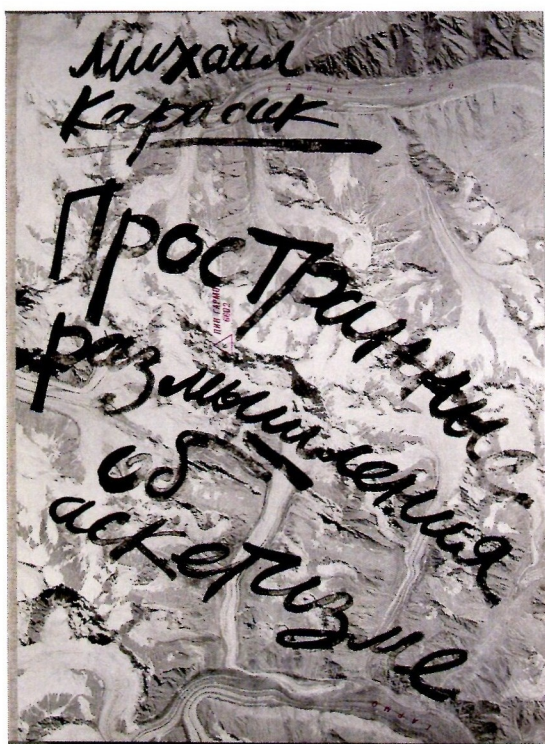 Михаил
Карасик
Пространные
размышления
об
аскетизме
ПИК САРМО
6802